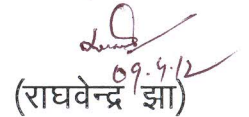 09.4.12
(राघवेन्द्र झा)